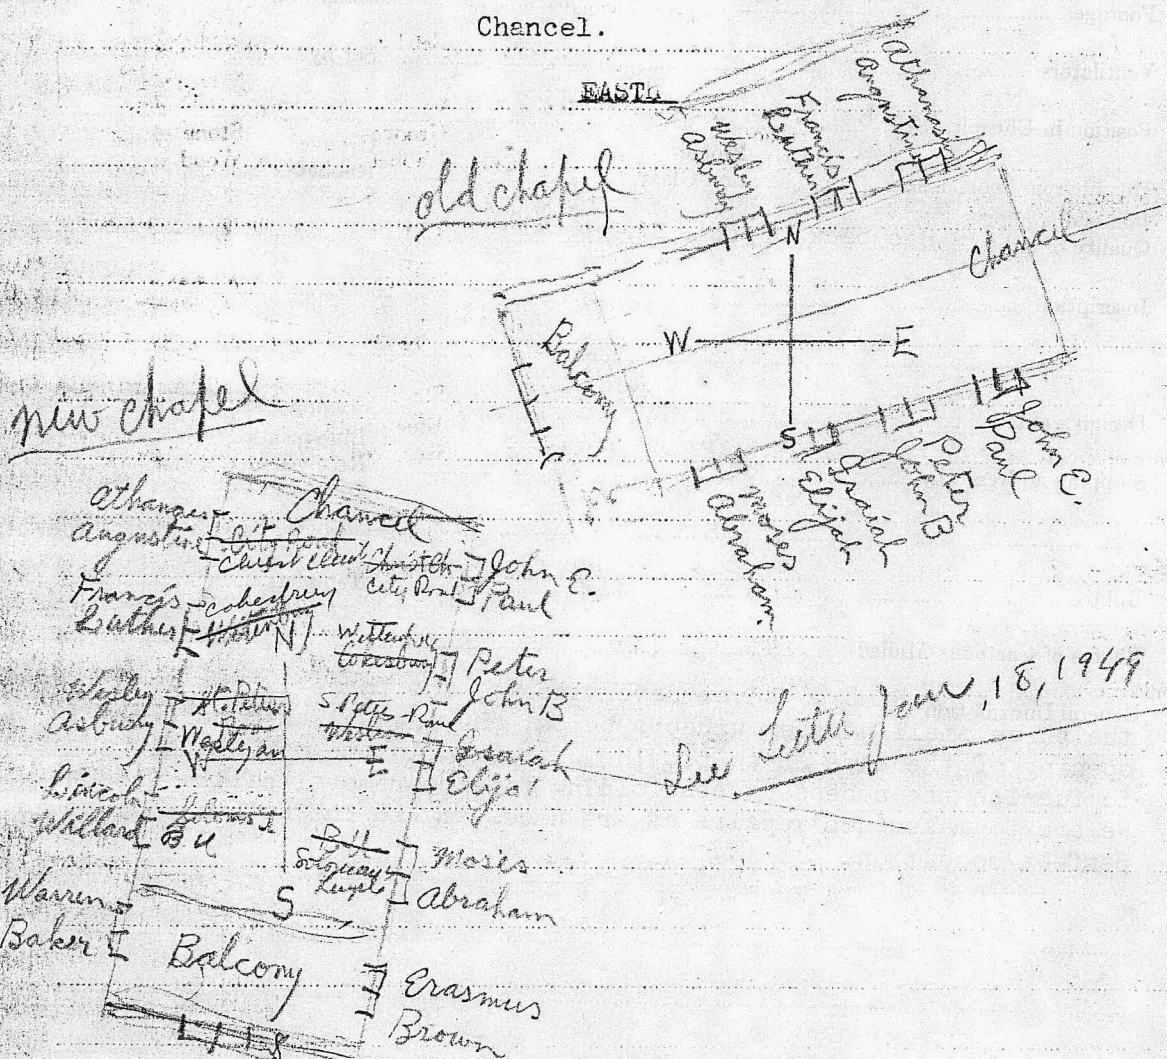 Chancel.
EAST
old chapel
Athanasius
Augustine
Francis
Luther
Wesley
Asbury
N
Chancel
W
E
Balcony
S
John E
Paul
Peter
John B
Isaiah
Elijah
Moses
Abraham
new chapel
Chancel
Athanas
Augustine
City Road
Christ Church
City Road
John E.
Paul
Francis
Luther
Cokesbury
N
Cokesbury
Peter
John B
Wesley
Asbury
St. Peter
Wesleyan
S. Peter - Paul
W
E
Isaiah
Elijah
Lincoln
Willard
B U
B U
Temple
Moses
Abraham
Warren
Baker
S
Balcony
Erasmus
Brown
See Letter Jan, 18, 1949